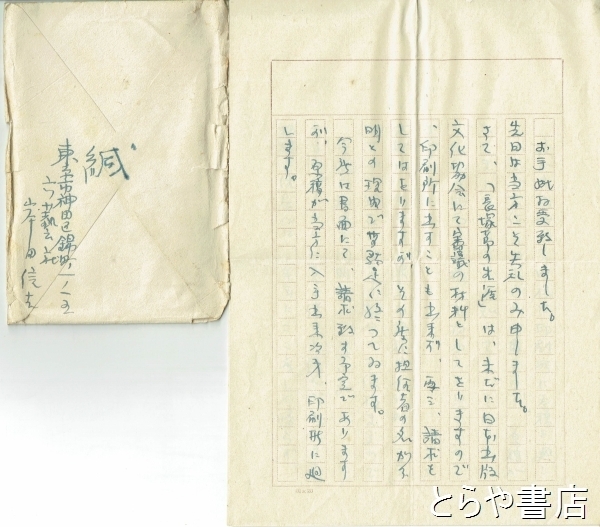 お手紙お受致しました。
先日は当方こそ失礼のみ申しました。
さて、「長塚節の生涯」は、未だに日本出版
文化協会にて審議の材料としてをりますので
、印刷所に出すことも出来ず、再三、請求を
してはをりますが、その度に担任者の名が不
明との理由で
に終つてゐます。
今度は書面にて、請求致す予定であります
が、原稿が当方に入手出来次第、印刷所に廻
します。
緘
東京市神田区錦町一ノ五
六藝社
田信
とらや書店